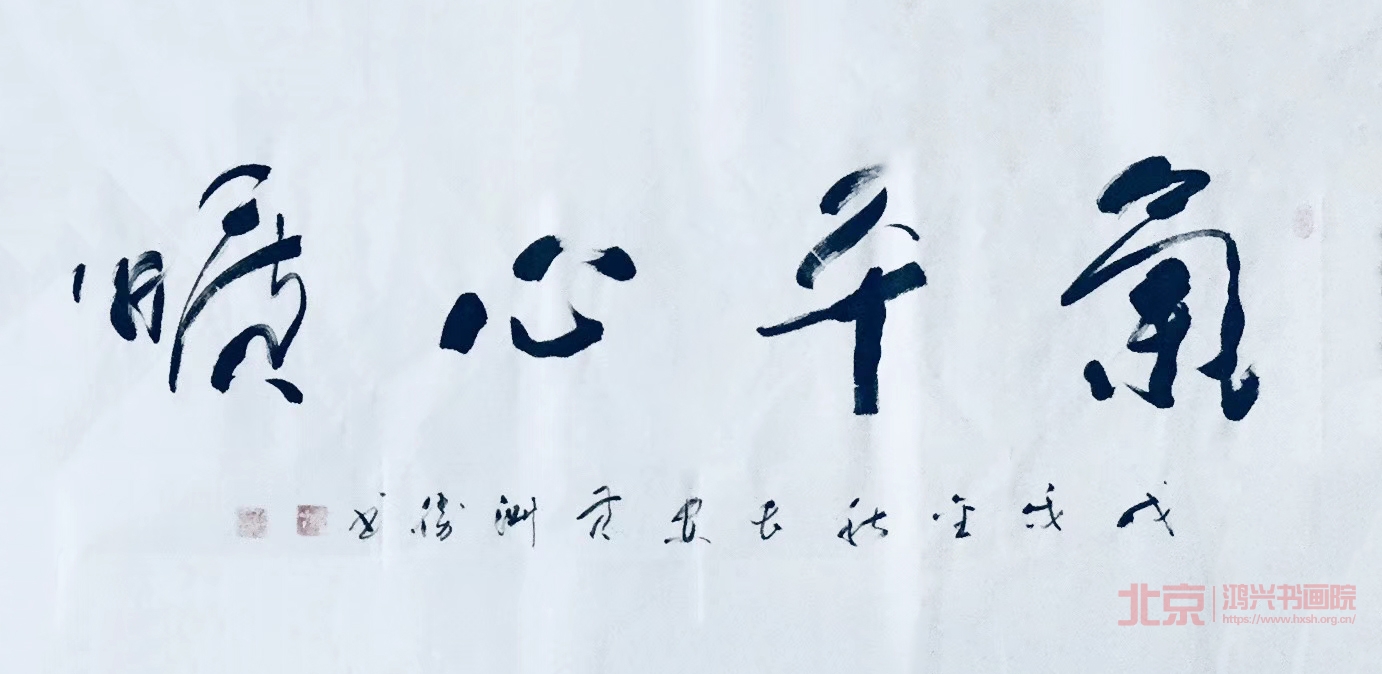 氣平心曠
戊戌金秋長安书
北京 鸿兴书画院
https://www.hxsh.org.cn/